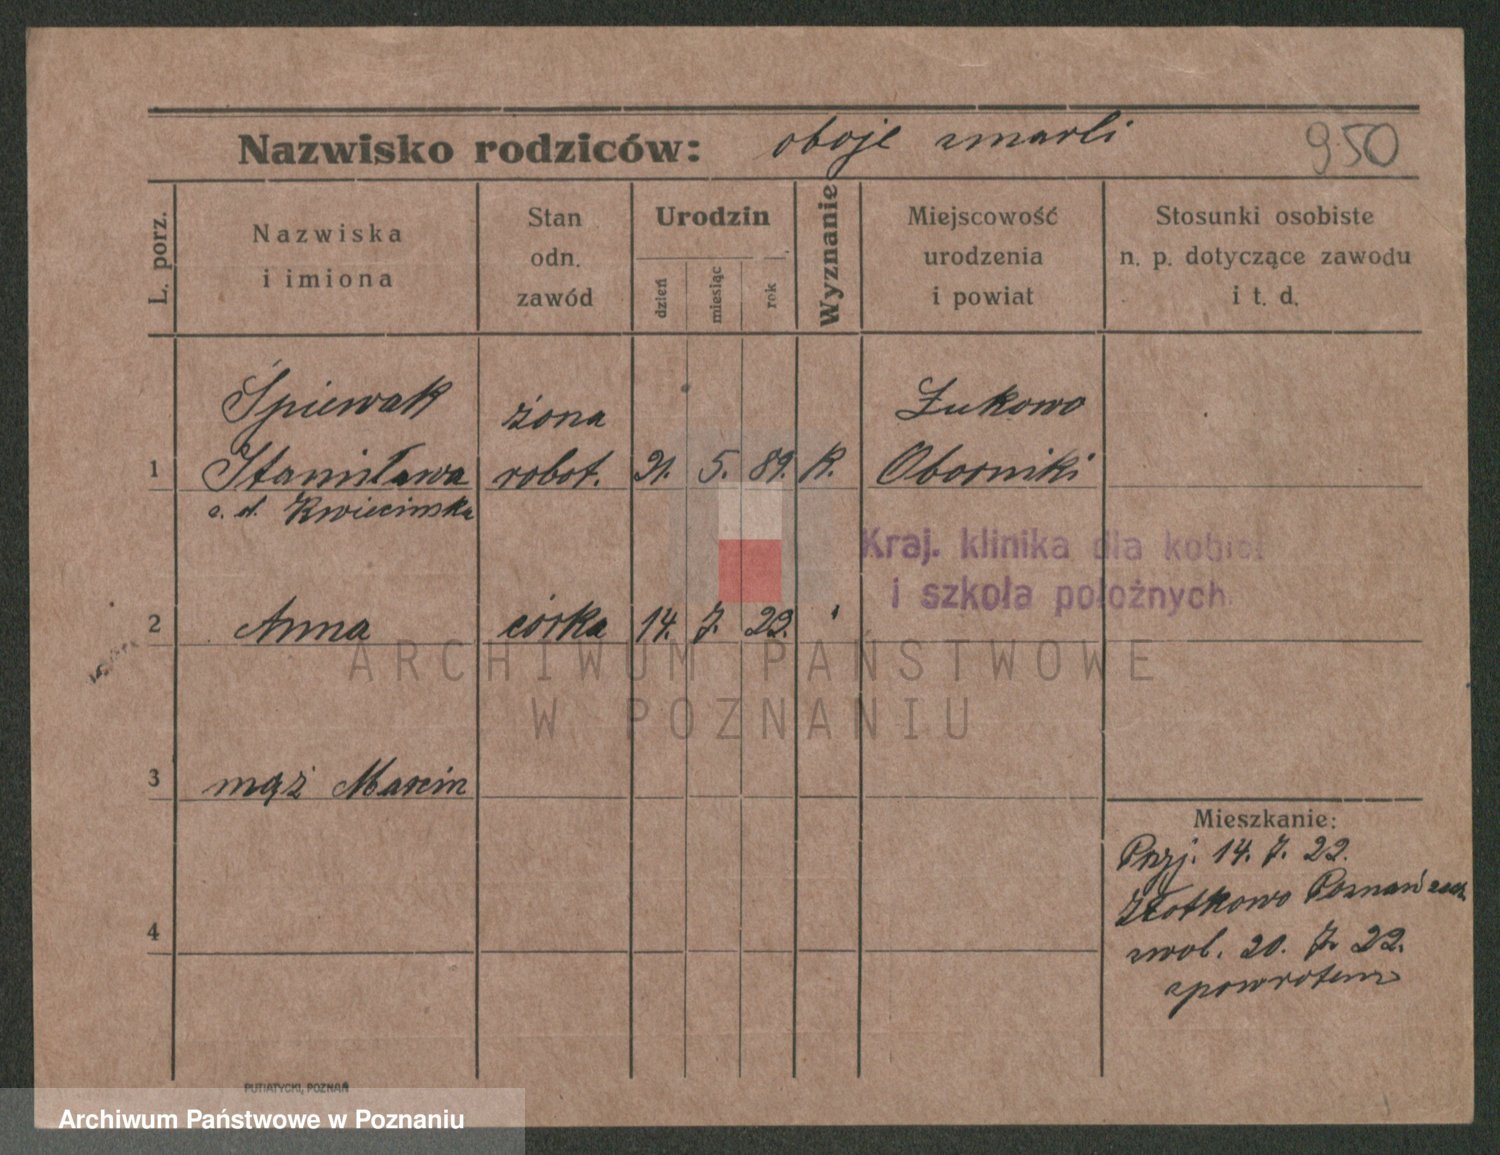 Nazwisko rodziców: oboje zmarli 950
L. porz.
Nazwiska
i imiona
Stan
odn.
zawód
Urodzin
dzień
miesiąc
rok
Wyznanie
Miejscowość
urodzenia
i powiat
Stosunki osobiste
n. p. dotyczące zawodu
i t. d.
Śpiewak żona Łukowo
1 Stanisława robot. 21. 5. 89. K. Oborniki
z. d. Kwiecinska
Kraj. klinika dla kobiet
i szkoła położnych.
2 Anna córka 14. 7. 22.
ARCHIWUM PAŃSTWOWE
W POZNANIU
3 mąż Marcin
Mieszkanie:
Przj. 14. 7. 22.
Złotkowo Poznań zach.
4
zwol. 20. 7. 22.
zpowrotem
PUTIATYCKI, POZNAŃ
Archiwum Państwowe w Poznaniu